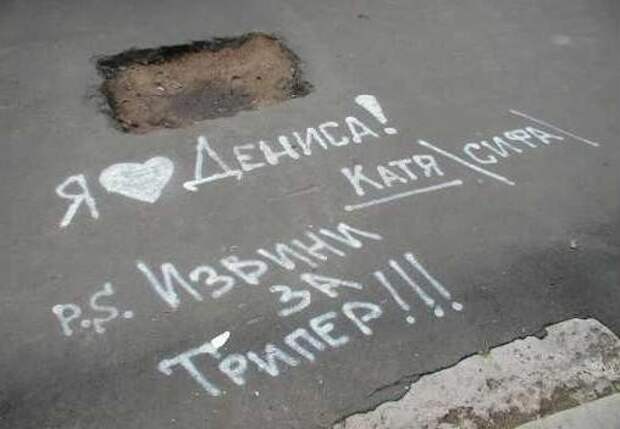 Я ♥ Дениса!
Катя \ СИФА \
P.S. Извини
за
Трипер!!!